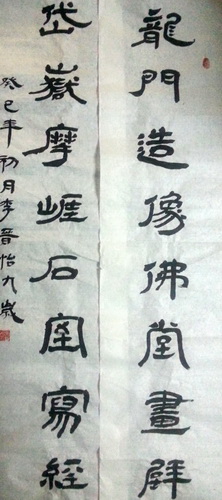 龍門造像佛堂畫壁
岱嶽摩崖石室寫經
癸巳年初月李晋怡九歲